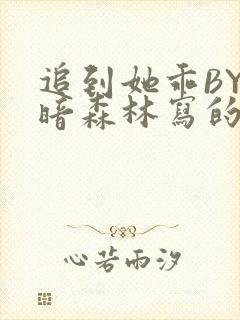 追到她乖BY
暗森林寫的
心若雨汐